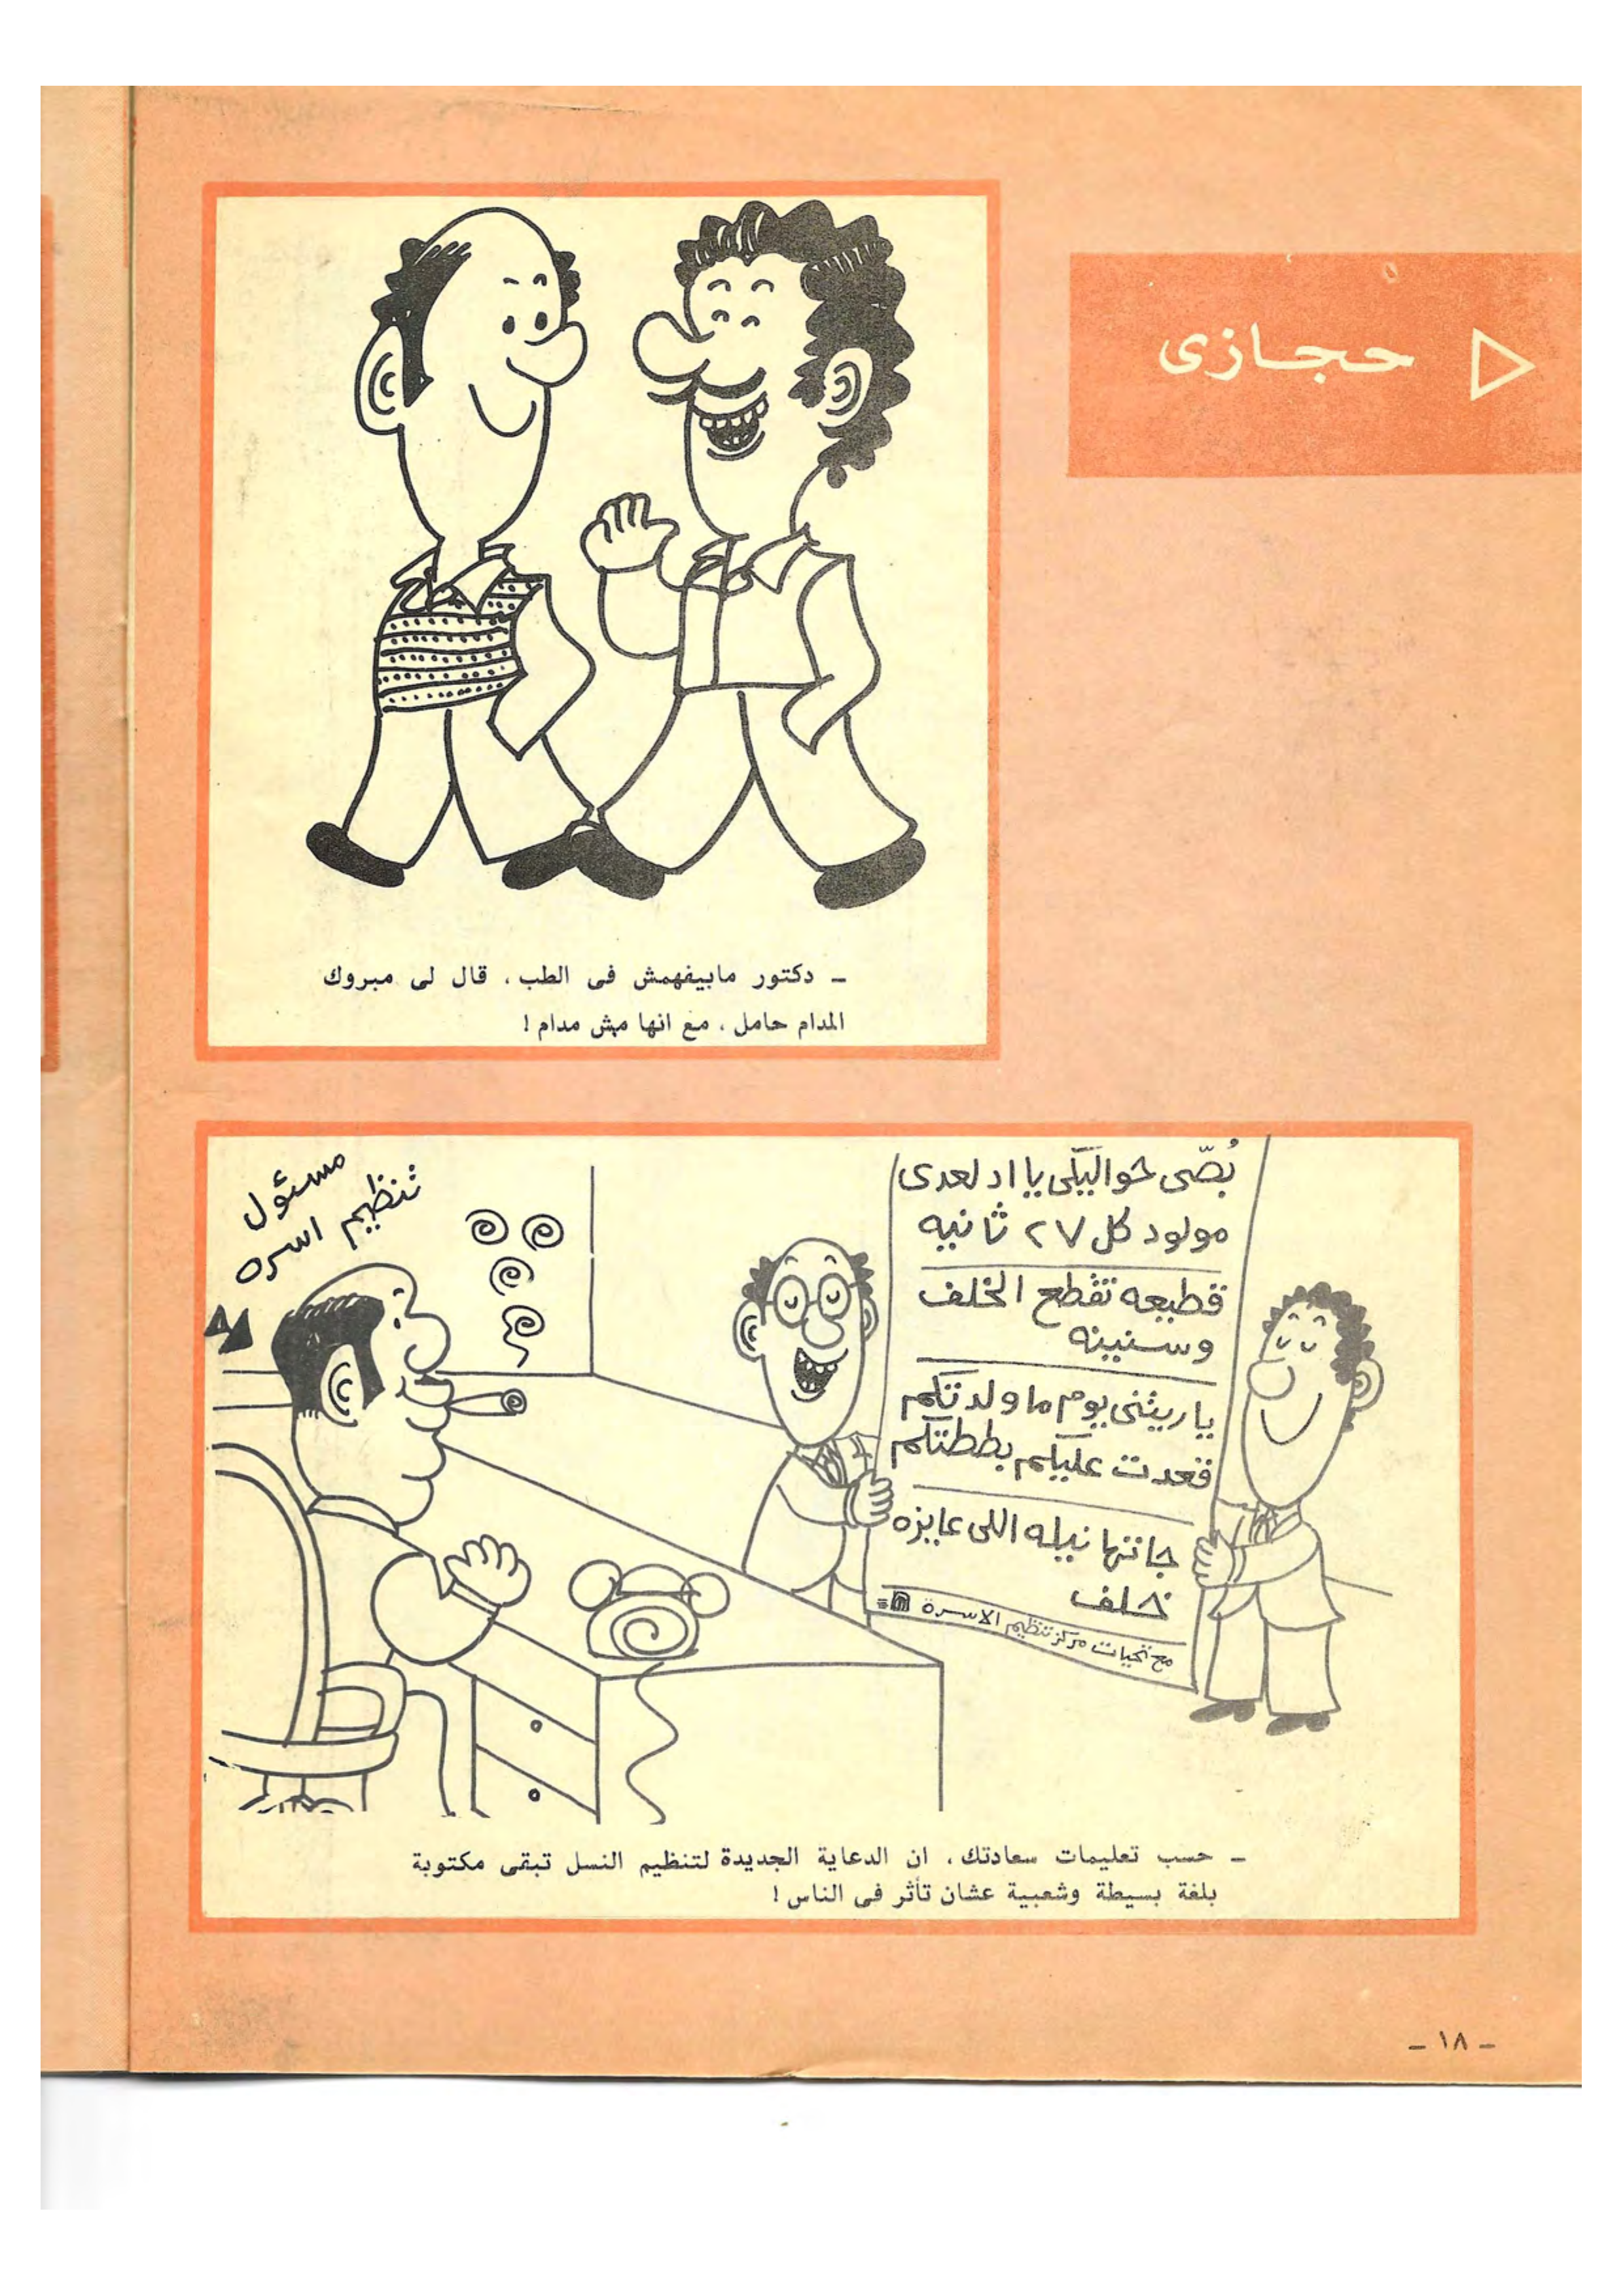 حجازى
ـ دكتور مابيفهمش فى الطب ، قال لى مبروك
المدام حامل ، مع انها مش مدام !
مسئول
تنظيم اسره
بُصّى حواليكى يا ادلعدى
مولود كل ٢٧ ثانيه
قطيعه تقطع الخلف
وسنينه
ياريتنى يوم ما ولدتكم
قعدت عليكم بططتكم
جاتها نيله اللى عايزه
خلف
مع تحيات مركز تنظيم الاسرة
ـ حسب تعليمات سعادتك ، ان الدعاية الجديدة لتنظيم النسل تبقى مكتوبة
بلغة بسيطة وشعبية عشان تأثر فى الناس !
ـ ١٨ ـ